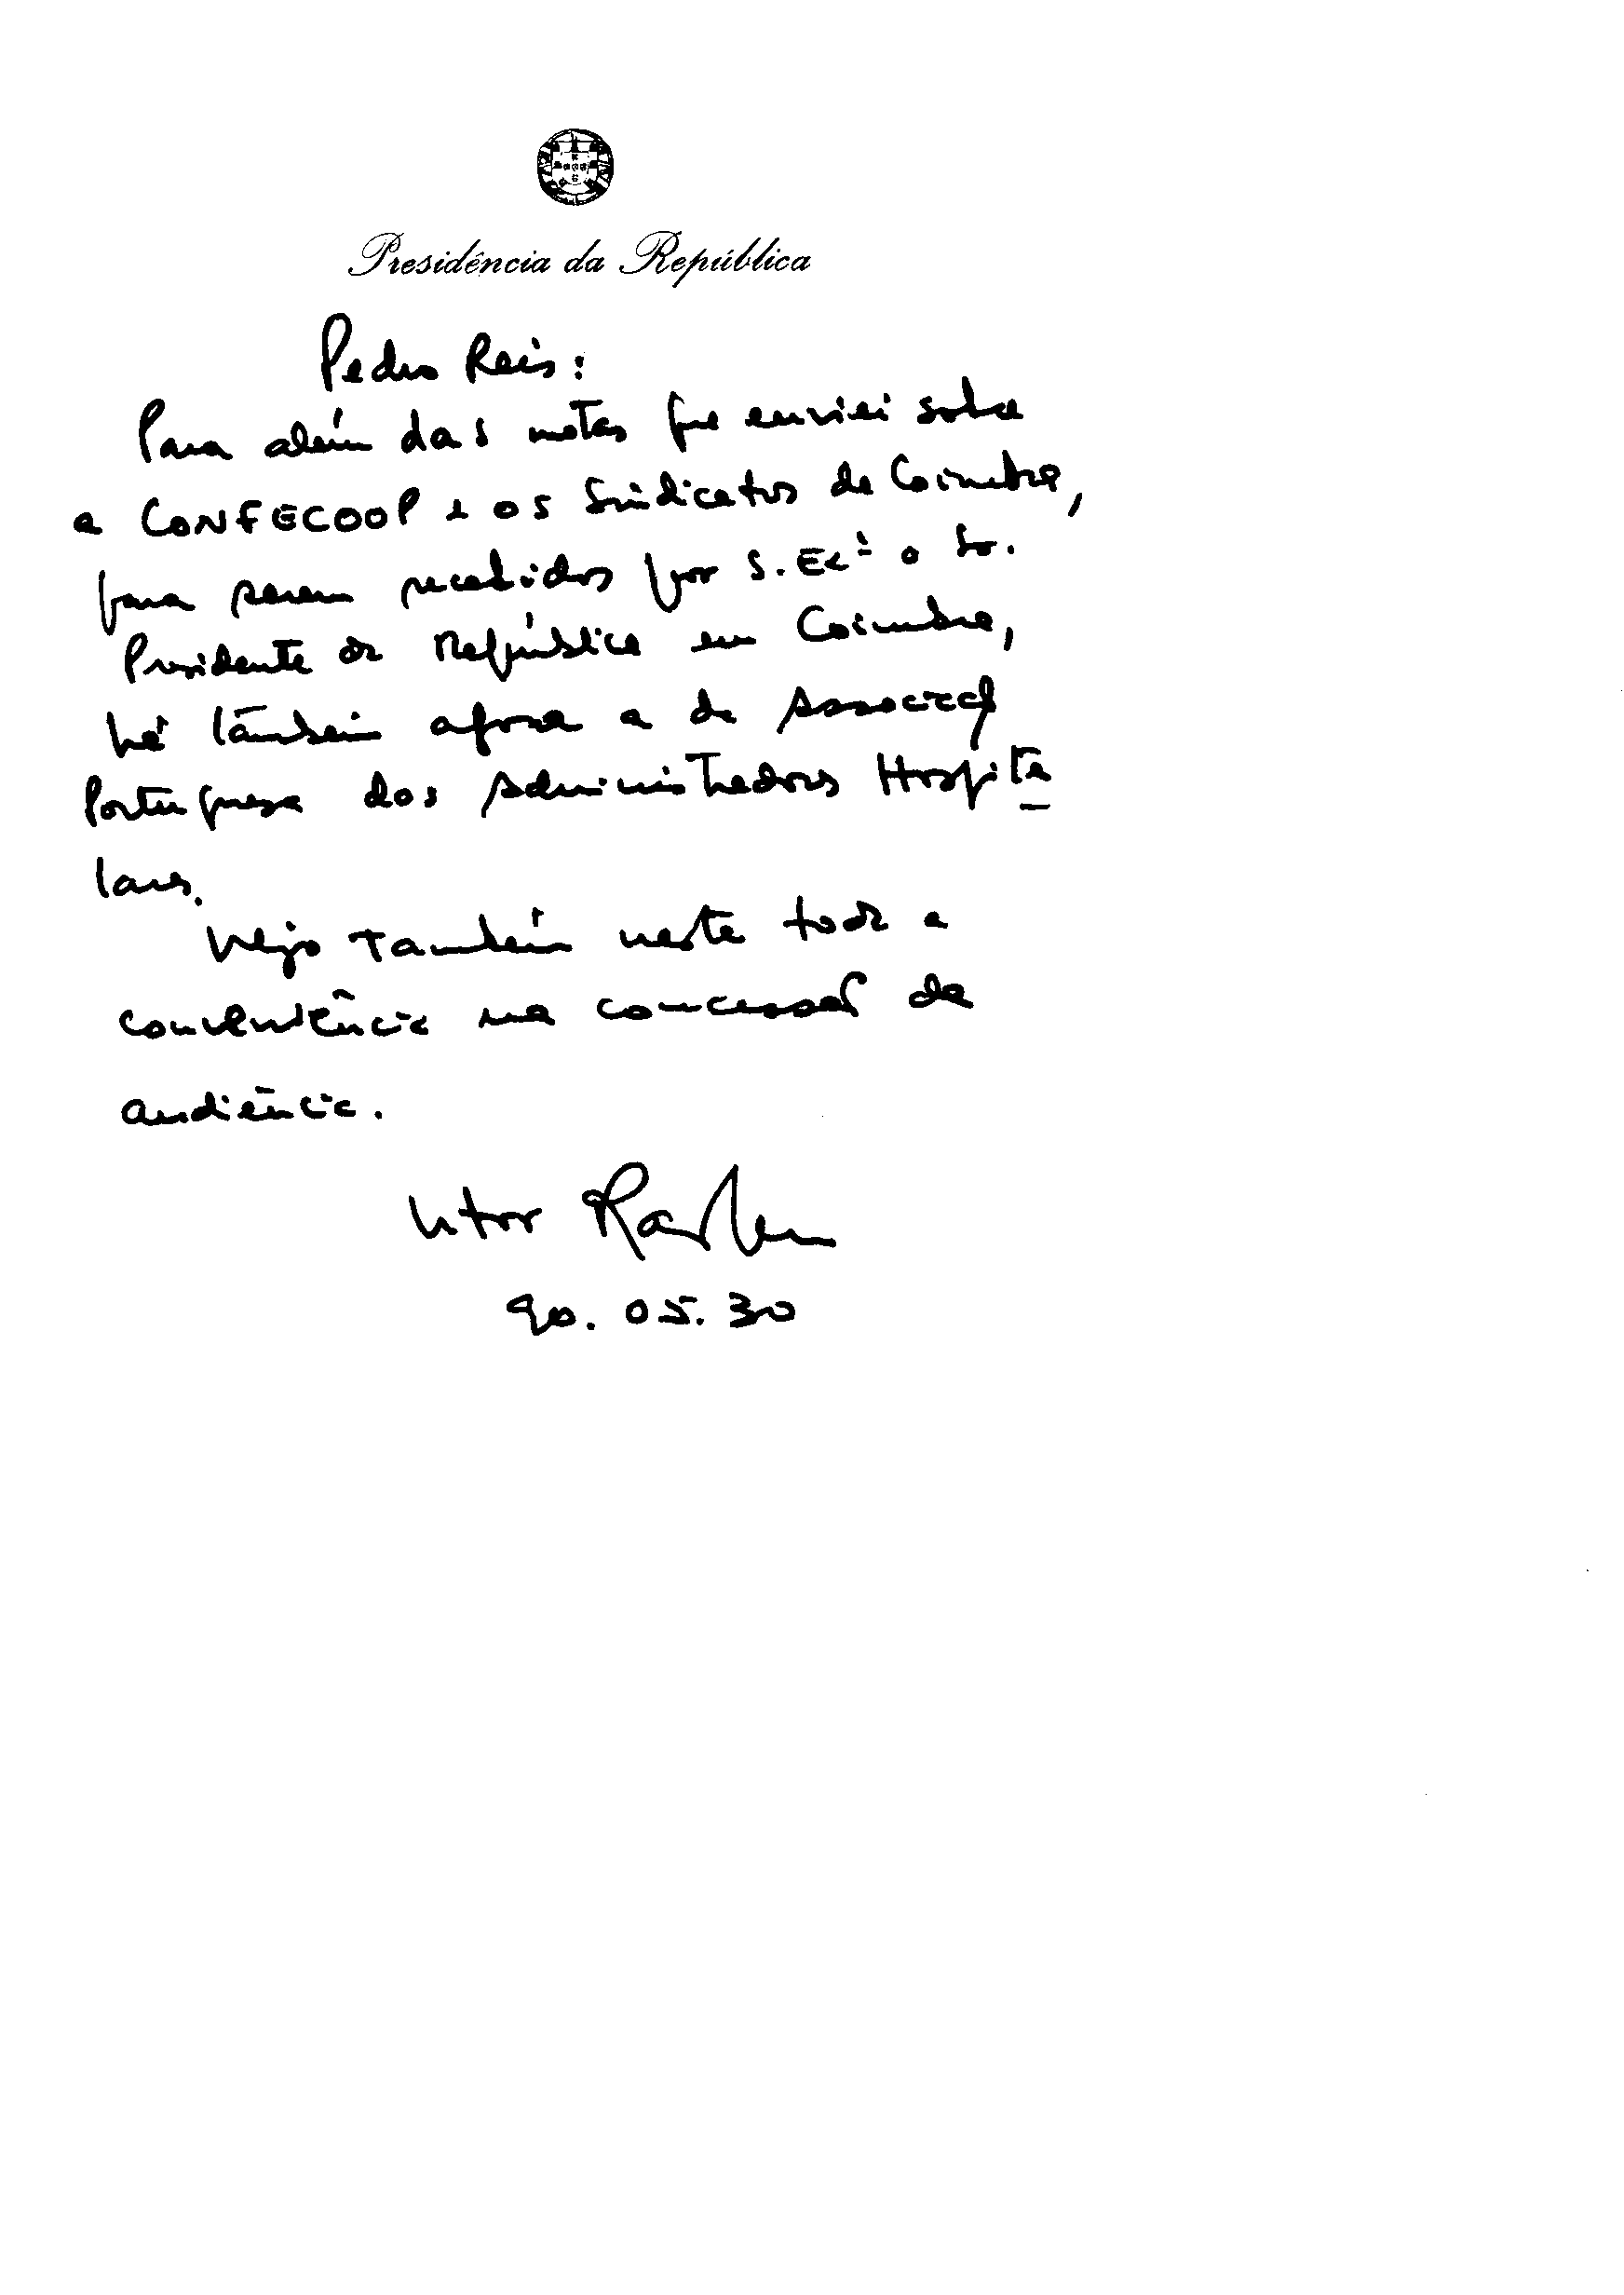 Presidência da República
Pedro Reis:
Para além das notas que enviei sobre
a CONFECOOP e os Sindicatos de Coimbra,
para serem recebidos por S. Exª o Sr.
Presidente da República em Coimbra,
há também agora a da Associação
Portuguesa dos Administradores Hospita
lares.
Vejo também nesta toda a
conveniência na concessão da
audiência.
Vitor Ramalho
90.05.30